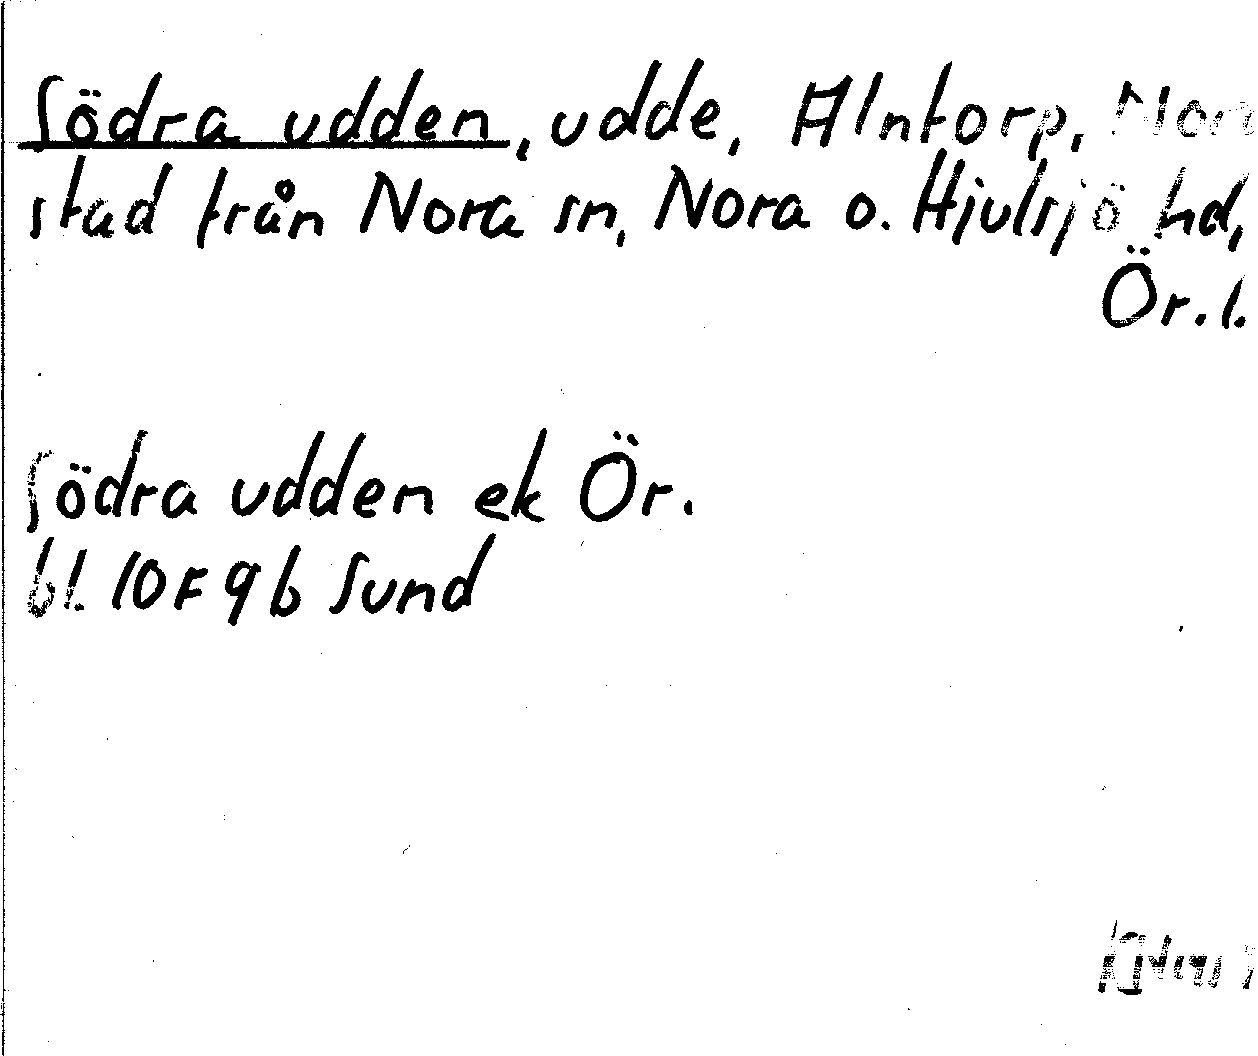 Södra udden, udde, Alntorp, Nora
stad från Nora sn, Nora o. Hjulsjö hd,
Ör. l.
Södra udden ek Ör.
bl. 10F9b Sund